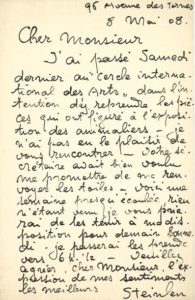 96 Avenue des Ternes
8 Mai 08.
Cher Monsieur
J'ai passé Samedi
dernier au "Cercle interna
tional des Arts" dans l'in
tention de reprendre les piè
ces qui ont figuré à l'exposi
tion des animaliers - je
n'ai pas eu le plaisir de
vous rencontrer - votre se
crétaire avait bien voulu
me promettre de me ren
voyer les toiles - voici une
semaine presque écoulée rien
n'étant venu je vous prie
rai de les tenir à ma dis
position pour demain Same
di - je passerai les prendre
vers 6h 1/2 Veuillez
agréer cher Monsieur l'ex
pression de mes sentiments
les meilleurs
Steinlen